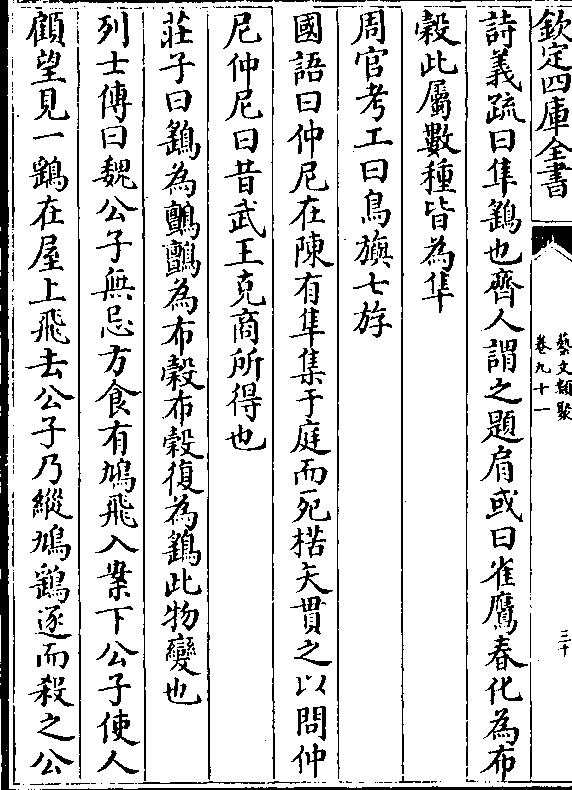 欽定四庫全書
藝文類聚
卷九十一
三十
詩義疏曰隼鷂也齊人謂之題肩或曰雀鷹春化為布
穀此屬數種皆為隼
周官考工曰鳥旟七斿
國語曰仲尼在陳有隼集于庭而死楛矢貫之以問仲
尼仲尼曰昔武王克商所得也
莊子曰鷂為鸇鸇為布穀布穀復為鷂此物變也
列士傳曰魏公子無忌方食有鳩飛入案下公子使人
顧望見一鷂在屋上飛去公子乃縱鳩鷂逐而殺之公